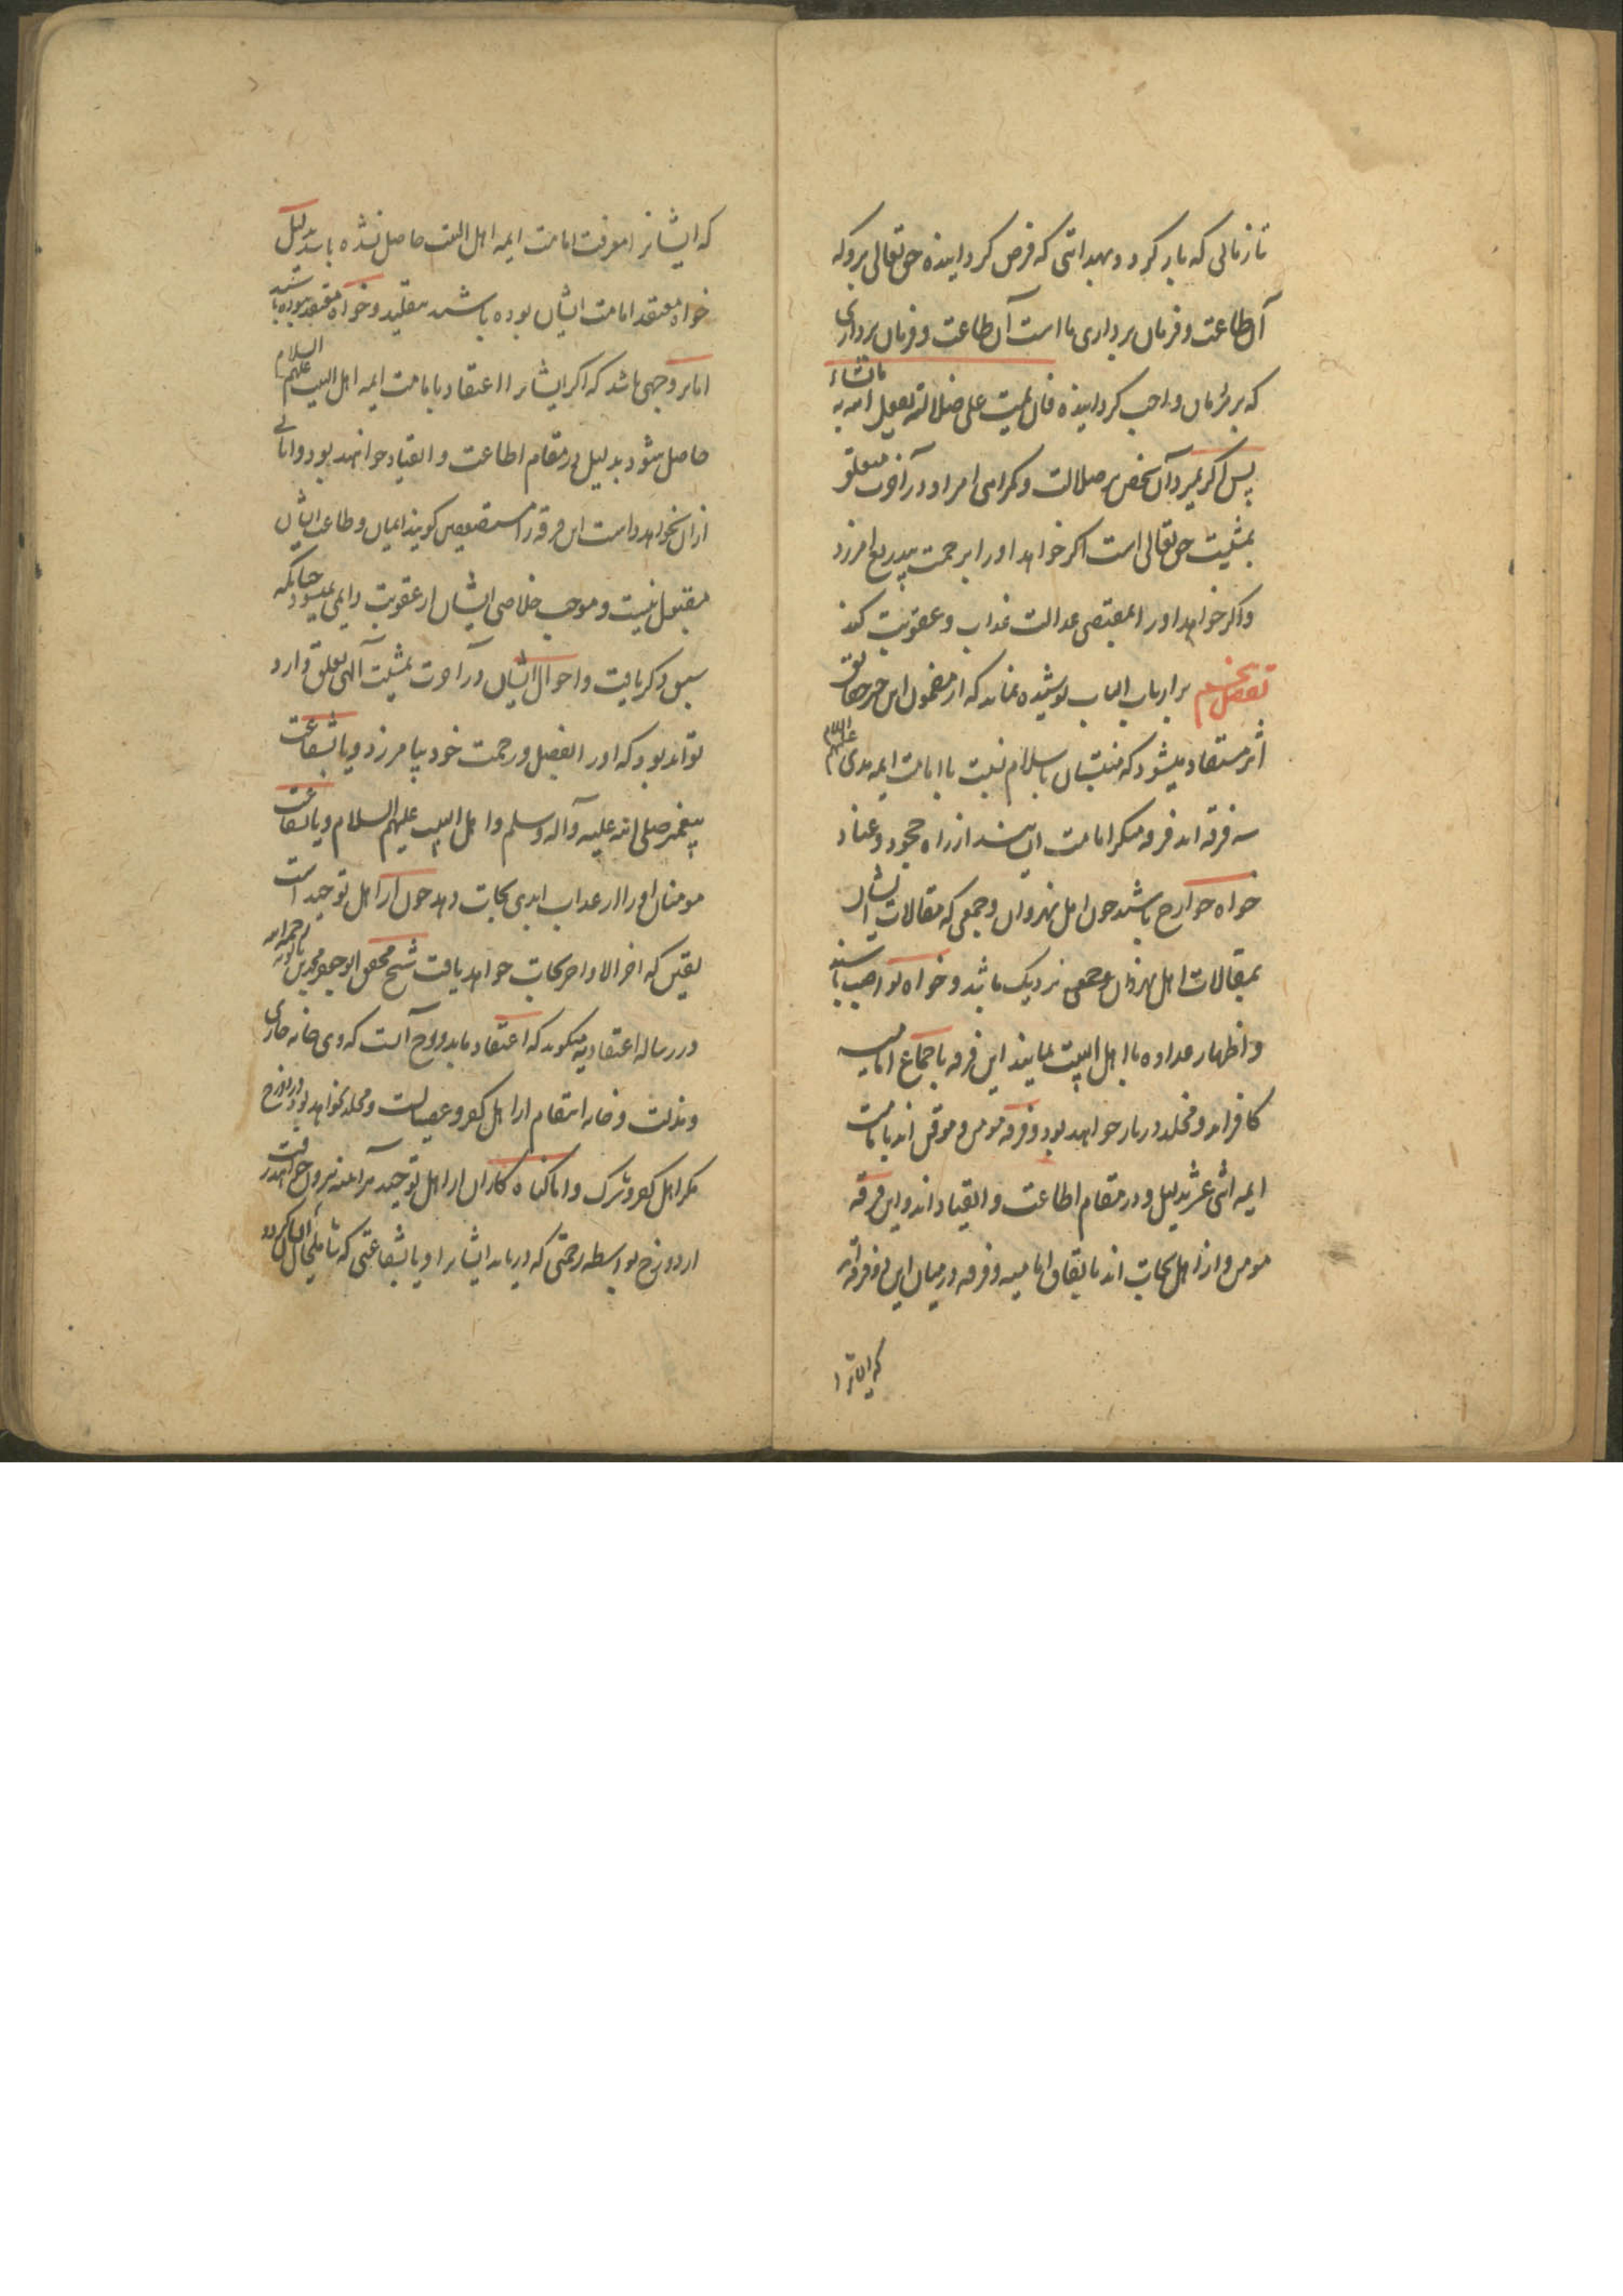 تا زمانی که باز گردد بهدایتی که فرض کردانیده حق تعالی برو که
آن طاعت و فرمان برداری ما است آن طاعت و فرمان برداری
که بر بندگان واجب کردانیده فان یمیت علی ضلالته یفعل الله به مایشاء
پس اگر بمیرد آن شخص بر ضلالت و کمراهی امر او در آخرت متعلق
بمشیت حق تعالی است اکر خواهد او را برحمت بیدریغ امرزد
و اکر خواهد او را بمقتضی عدالت عذاب و عقوبت کند
بر ارباب الباب پوشیده نماند که از مضمون این خبر حقایق
اثر مستفاد میشود که منتسبان باسلام نسبت با امامت ایمه هدی علیهم السلام
سه فرقه اند فرقه منکر امامت ایشانند از راه جحود و عناد
خواه خوارج باشند چون اهل نهروان و جمعی که مقالات ایشان
بمقالات اهل نهروان نزدیک باشد و خواه نواصب باشند
و اظهار عداوه با اهل البیت نمایند این فرقه باجماع امامیه
کافراند و مخلد در نار خواهند بود و فرقه مومن و موقن اند بامامت
ایمه اثنی عشر بدلیل و در مقام اطاعت و انقیاد اند و این فرقه
مومن و از اهل نجات اند باتفاق امامیه و فرقه در میان این دو فرقه اند
که ایشانرا
که ایشانرا معرفت امامت ایمه اهل البیت حاصل نشده باشد بدلیل
خواه معتقد امامت ایشان بوده باشند بتقلید و خواه معتقد نبوده باشند
اما بر وجهی باشد که اکر ایشانرا اعتقاد بامامت ایمه اهل البیت علیهم السلام
حاصل شود بدلیل در مقام اطاعت و انقیاد خواهند بود و ابائی
از ان نخواهند داشت این فرقه را مستضعفین کویند ایمان و طاعت ایشان
مقبول نیست و موجب خلاصی ایشان از عقوبت دایمی نمیشود چنانکه
سبق ذکر یافت و احوال ایشان در آخرت بمشیت آلهی تعلق دارد
تواند بود که او را بفضل و رحمت خود بیامرزد و یا بشفاعت
پیغمبر صلی الله علیه و آله و سلم و اهل البیت علیهم السلام و یا بشفاعت
مومنان او را از عذاب ابدی نجات دهد چون از اهل توحید است
یقین که اخر الامر نجات خواهد یافت شیخ محقق ابو جعفر محمد بن بابویه رحمه الله
در رساله اعتقادیه میکوید که اعتقاد ما در دوزخ آنست که وی خانه خاری
و مذلت و خانه انتقام از اهل کفر و عصیانست و مخلد نخواهد بود در دوزخ
مکر اهل کفر و شرک و اما کناه کاران از اهل توحید هر آینه بیرون خواهند رفت
از دوزخ بواسطه رحمتی که دریابد ایشانرا و یا بشفاعتی که شامل حال ایشان کردد